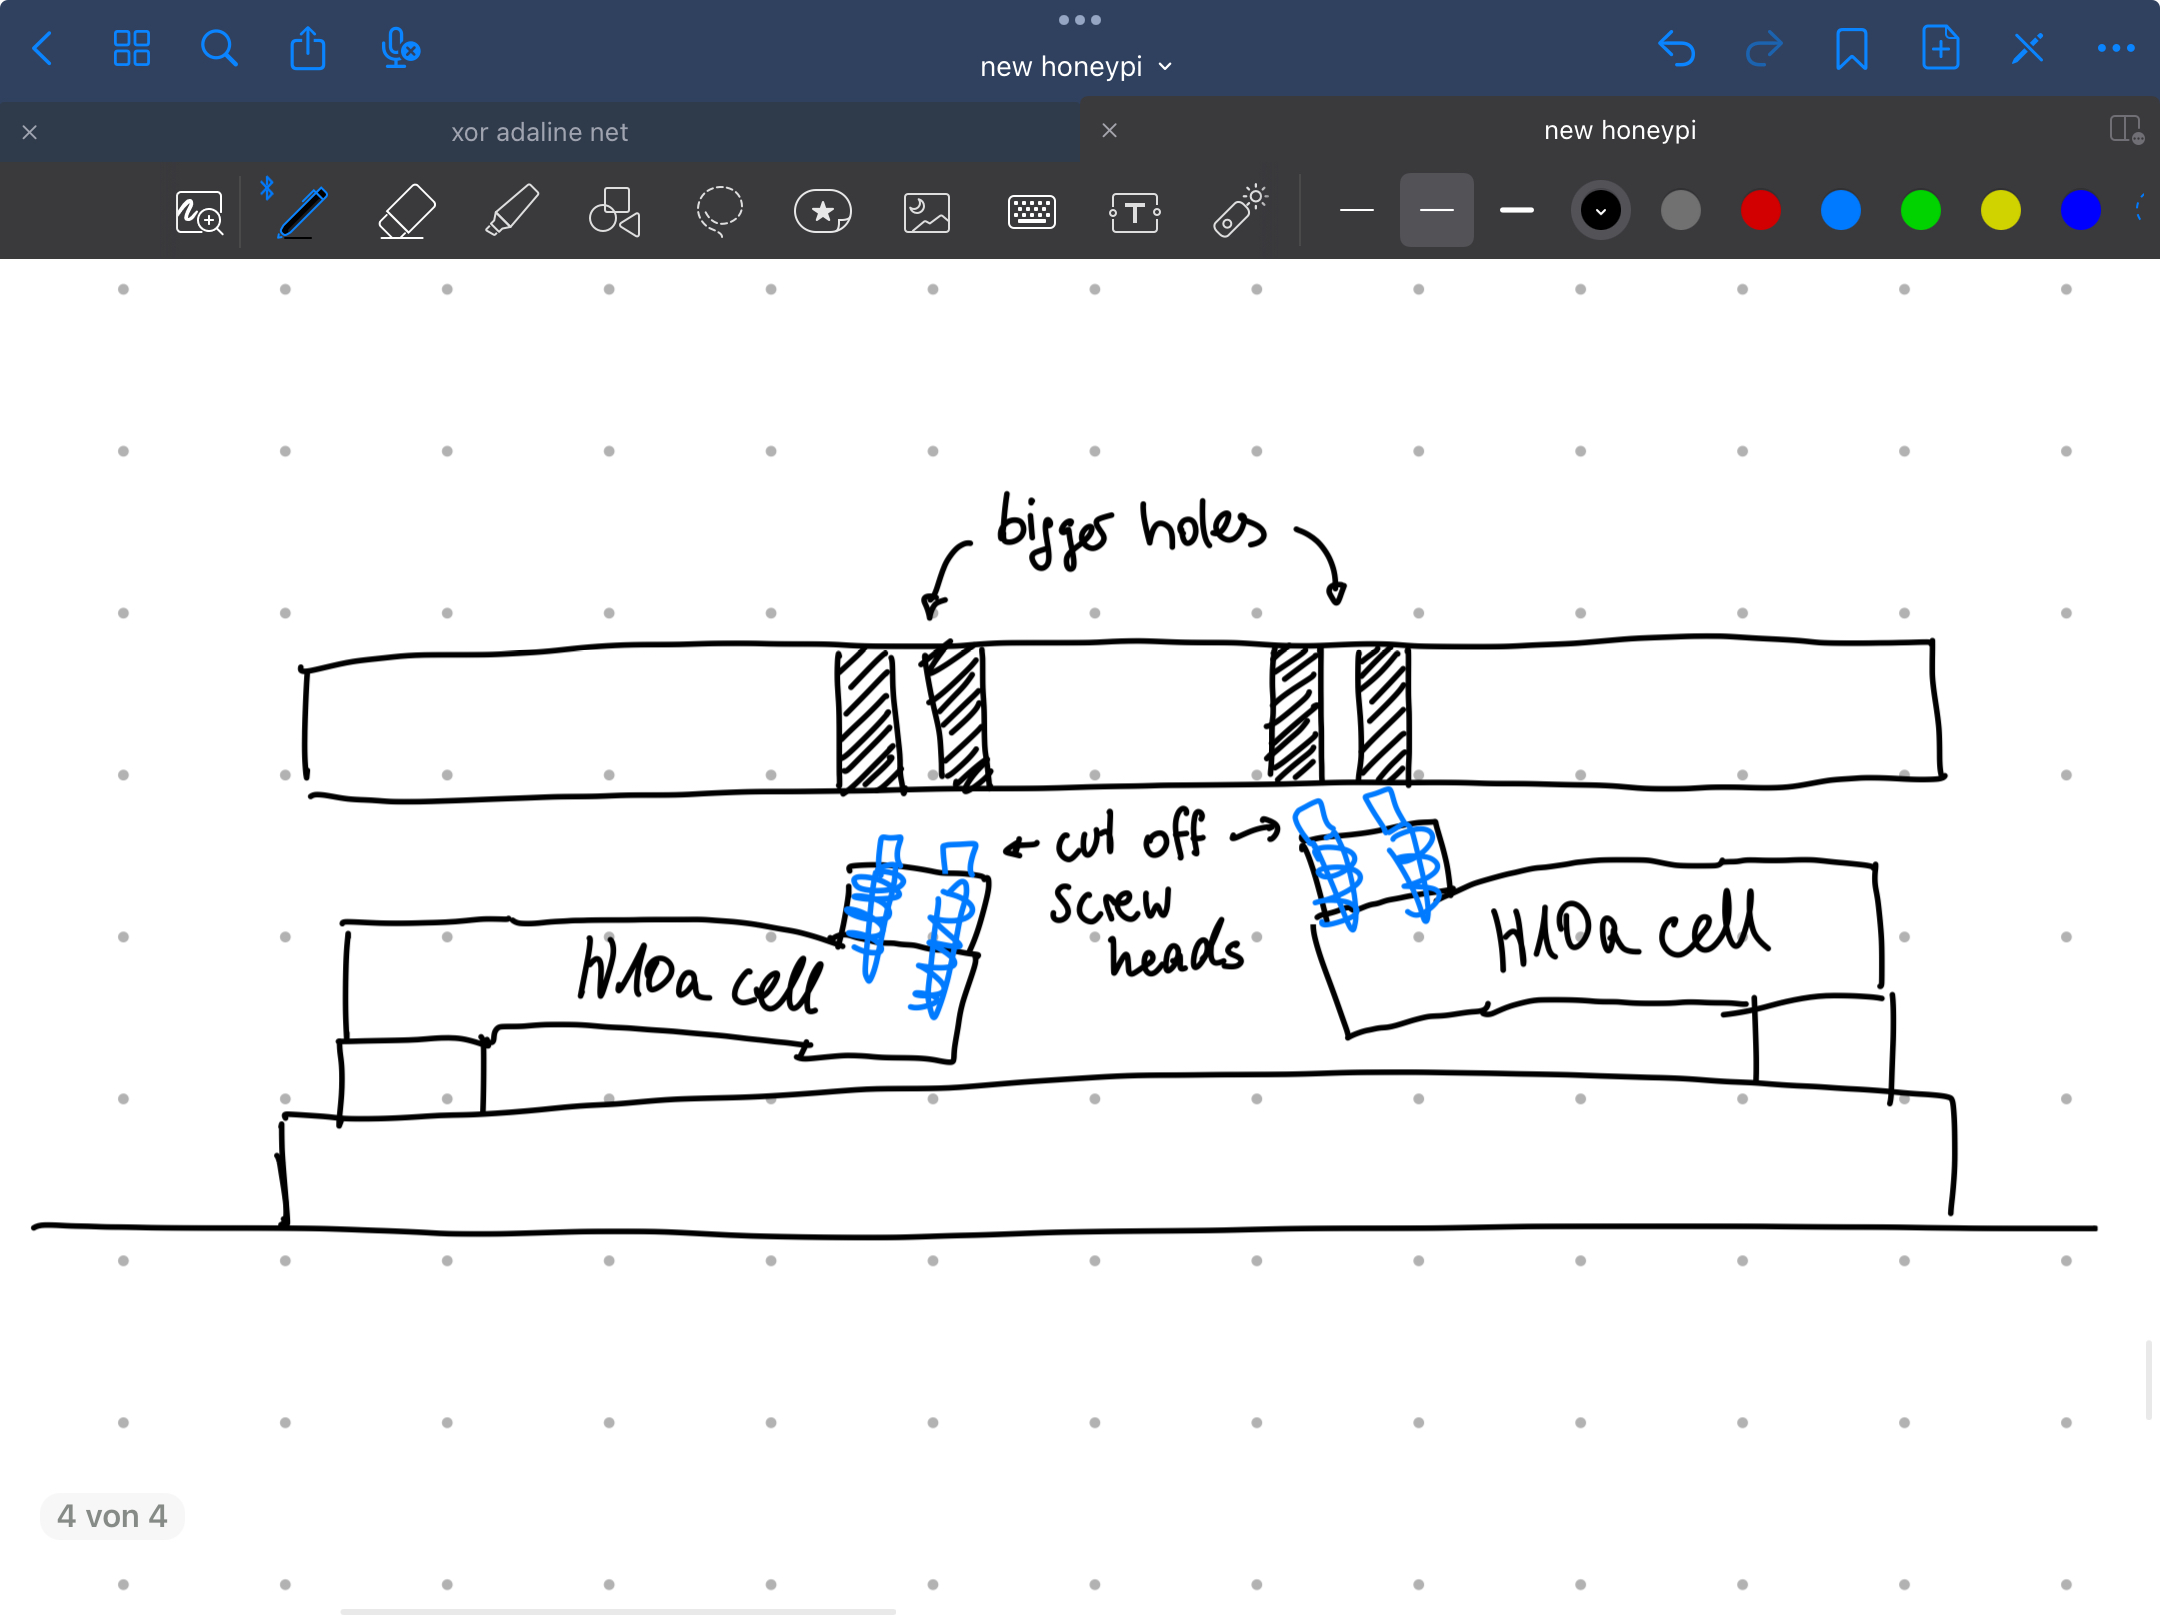 new honeypi
xor adaline net
new honeypi
bigger holes
cut off
screw
heads
H10a cell
H10a cell
4 von 4